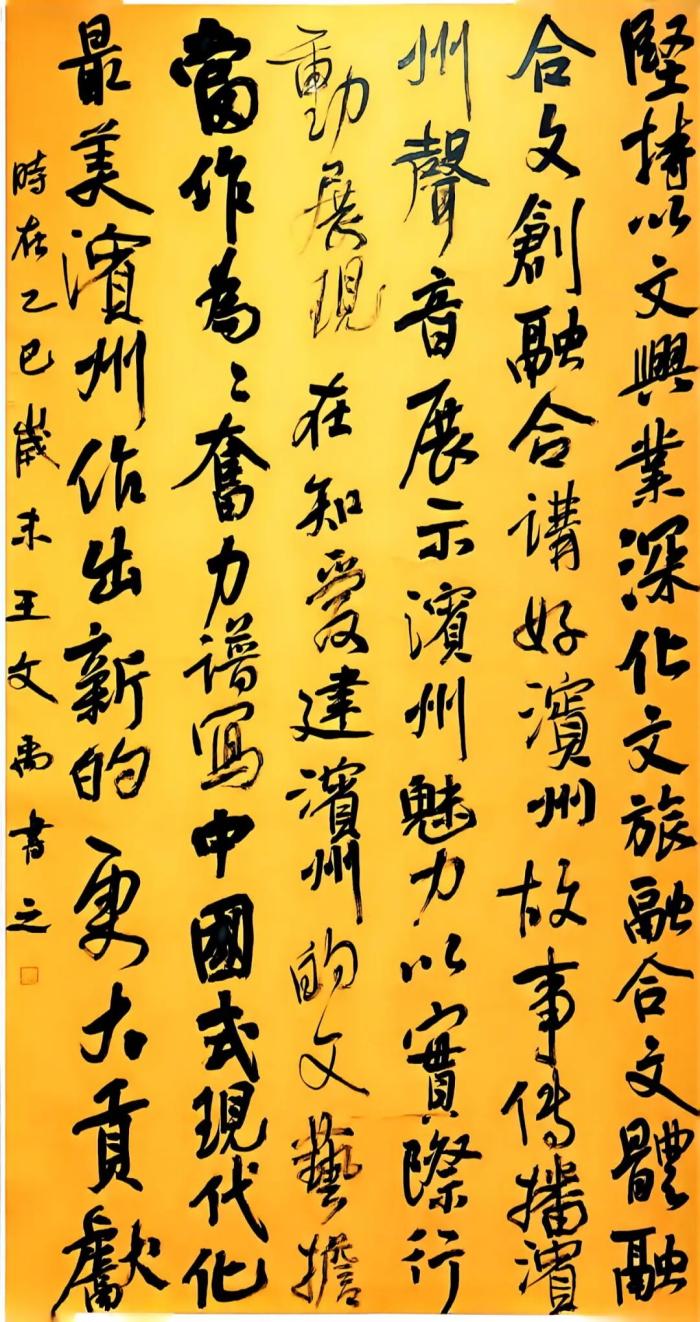 堅持以文興業深化文旅融合文體融
合文創融合講好濱州故事傳播濱
州聲音展示濱州魅力以實際行
動展現在知愛建濱州的文藝擔
當作為〻奮力譜寫中國式現代化
最美濱州作出新的更大貢獻
時在乙巳歲末王文禹書之